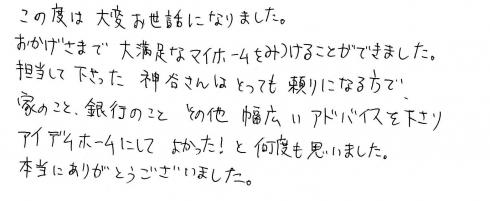 この度は 大変お世話になりました。
おかげさまで 大満足なマイホームをみつけることができました。
担当して下さった 神谷さんはとっても 頼りになる方で、
家のこと、銀行のこと その他 幅広いアドバイスを下さり
アイデムホームにして よかった！と 何度も思いました。
本当にありがとうございました。